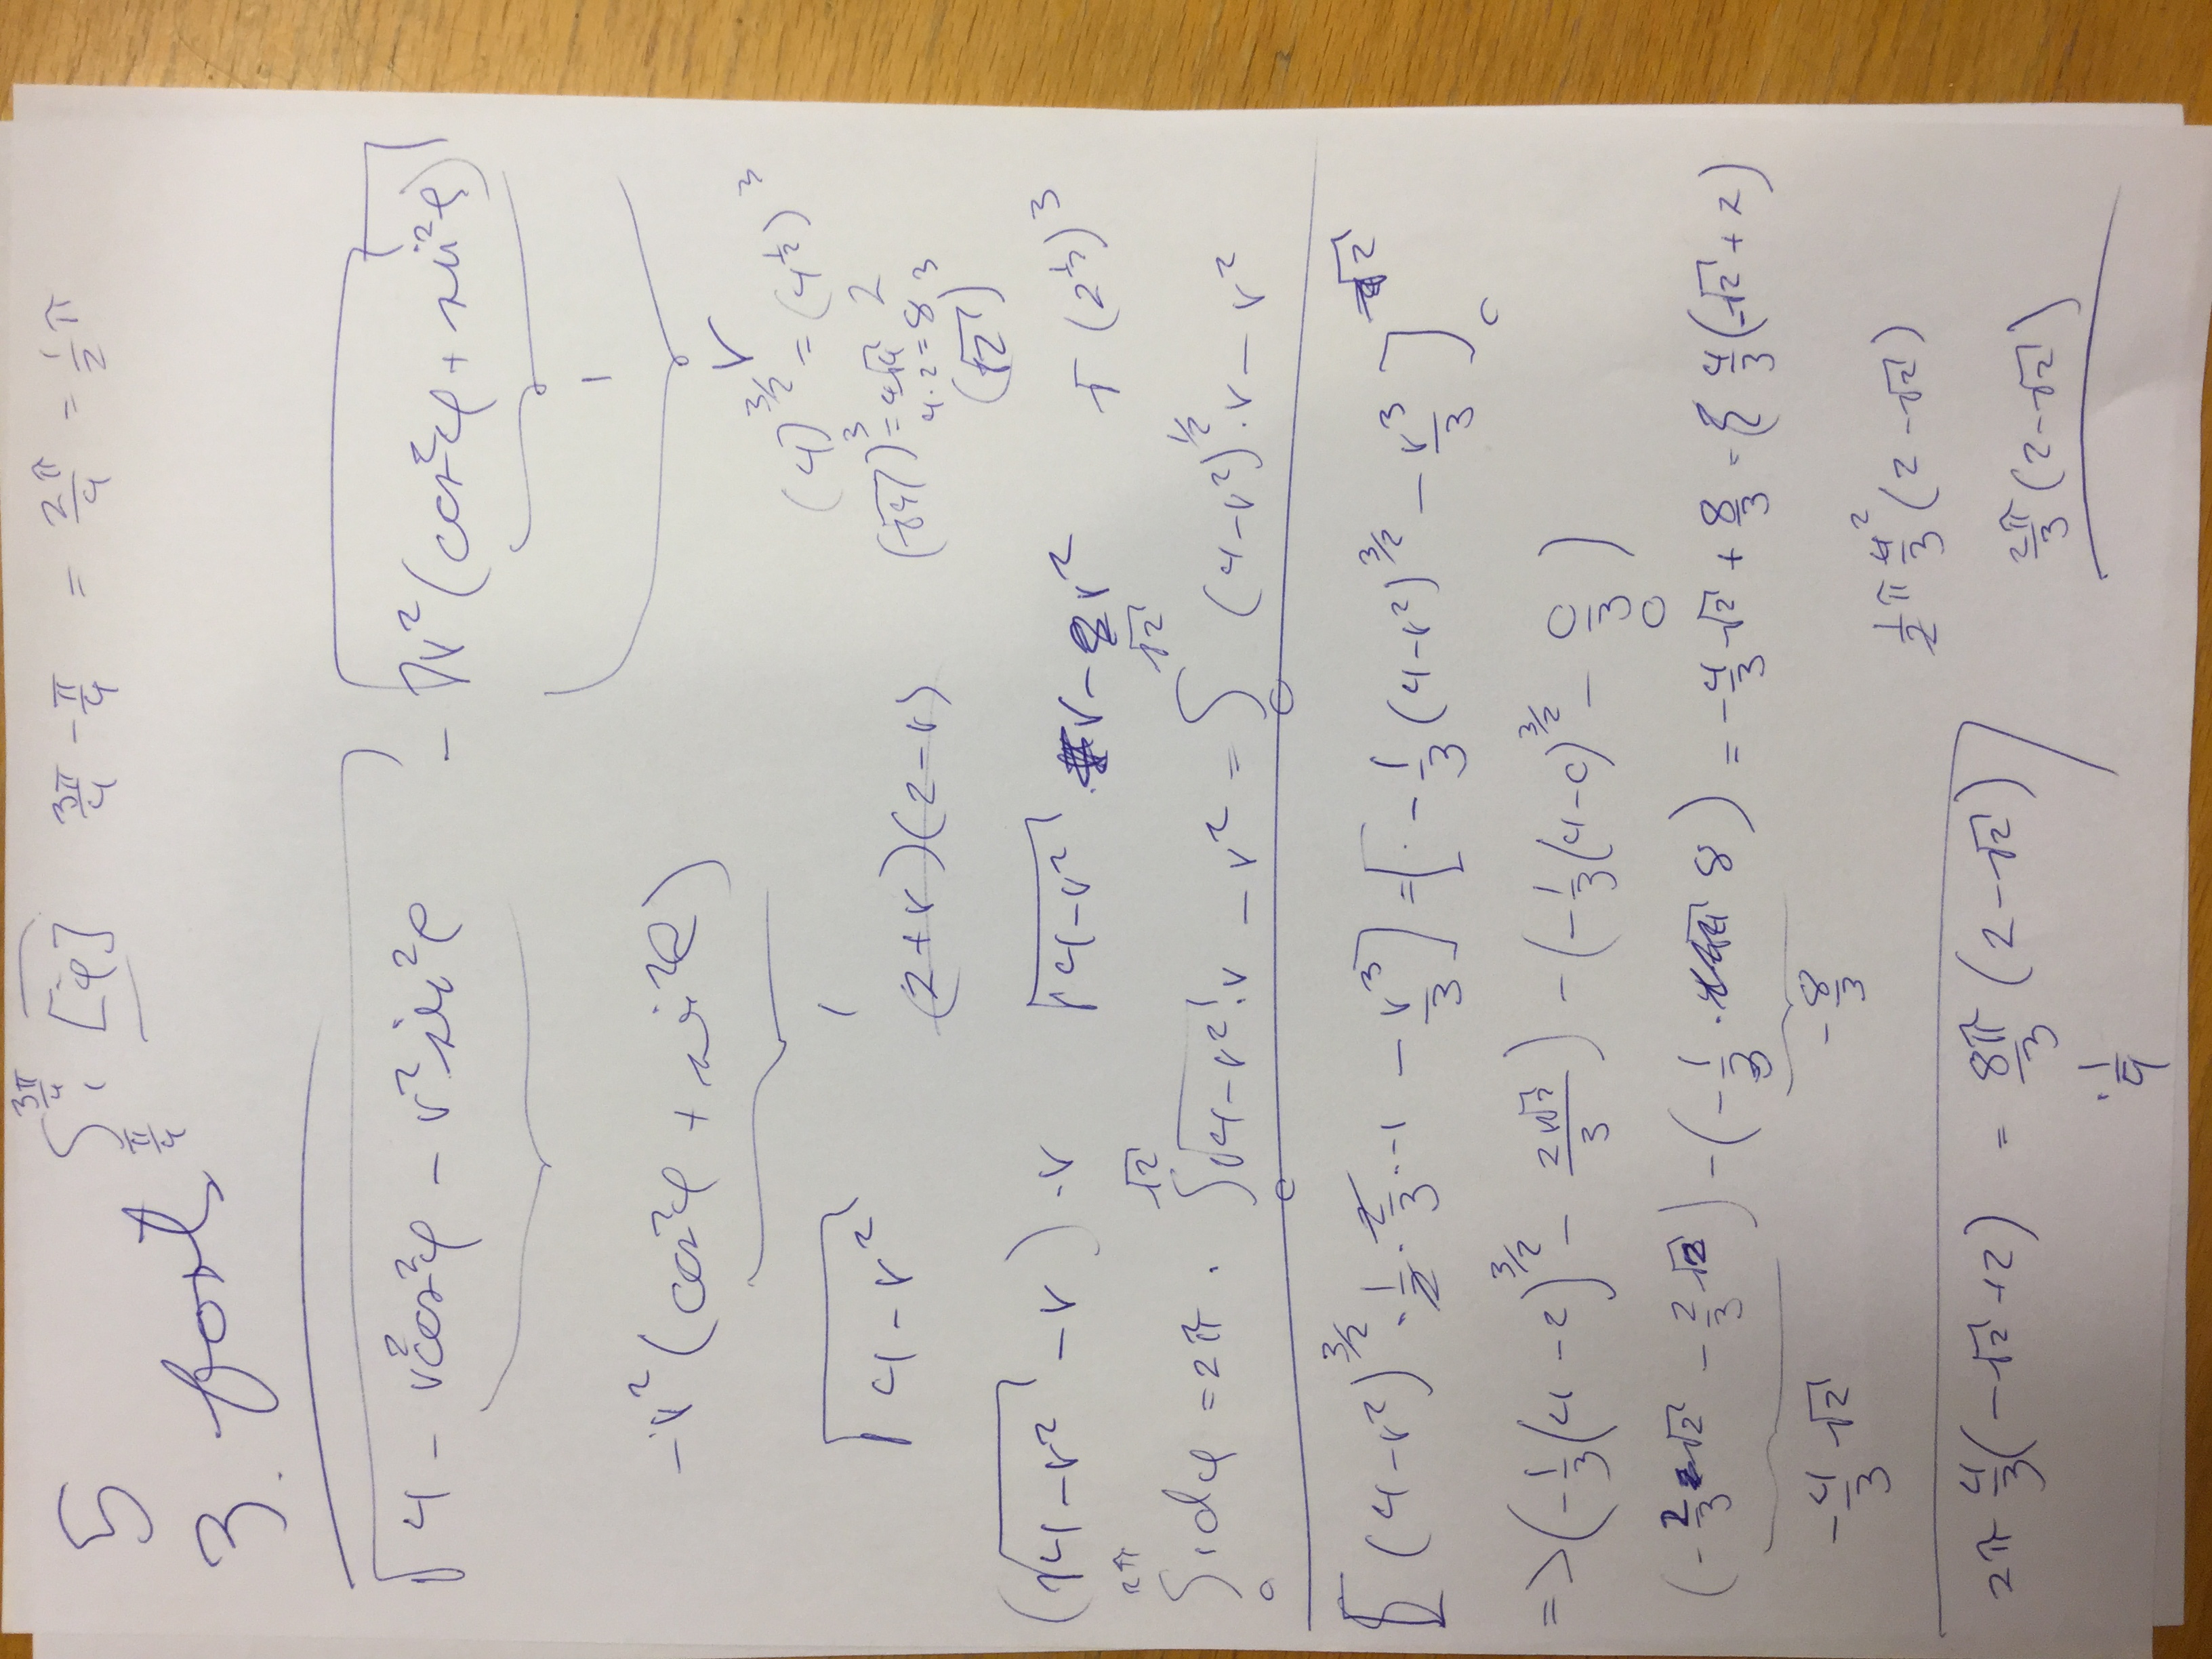 5 ∫_{π/4}^{3π/4} 1 [φ] 3π/4 - π/4 = 2π/4 = 1/2 π
3. forts
√(4 - r²cos²φ - r²sin²φ) - √(r²(cos²φ + sin²φ))
1
-r²(cos²φ + sin²φ)
r
(4)^{3/2} = (4^{1/2})³
√(4-r²) 1
(2+r)(2-r) (√4)³ = 4√4 2
4·2=8 3
(√2)³
(√(4-r²) - r)·r √(4-r²) · r - r² (2^{1/2})³
∫_0^{2π} 1dφ = 2π · ∫_0^{√2} √(4-r²)·r - r² = ∫_0^{√2} (4-r²)^{1/2}·r - r²
[(4-r²)^{3/2} · 1/2 · 2/3 · -1 - r³/3] = [-1/3 (4-r²)^{3/2} - r³/3]_0^{√2}
=> (-1/3 (4-2)^{3/2} - 2√2/3) - (-1/3 (4-0)^{3/2} - 0/3)
0
(-2/3 √2 - 2/3 √2) - (-1/3 · 8) = -4/3 √2 + 8/3 = 4/3 (-√2 + 2)
-4/3 √2 -8/3
1/2 π 4²/3 (2-√2)
2π 4/3 (-√2+2) = 8π/3 (2-√2)
2π/3 (2-√2)
· 1/4